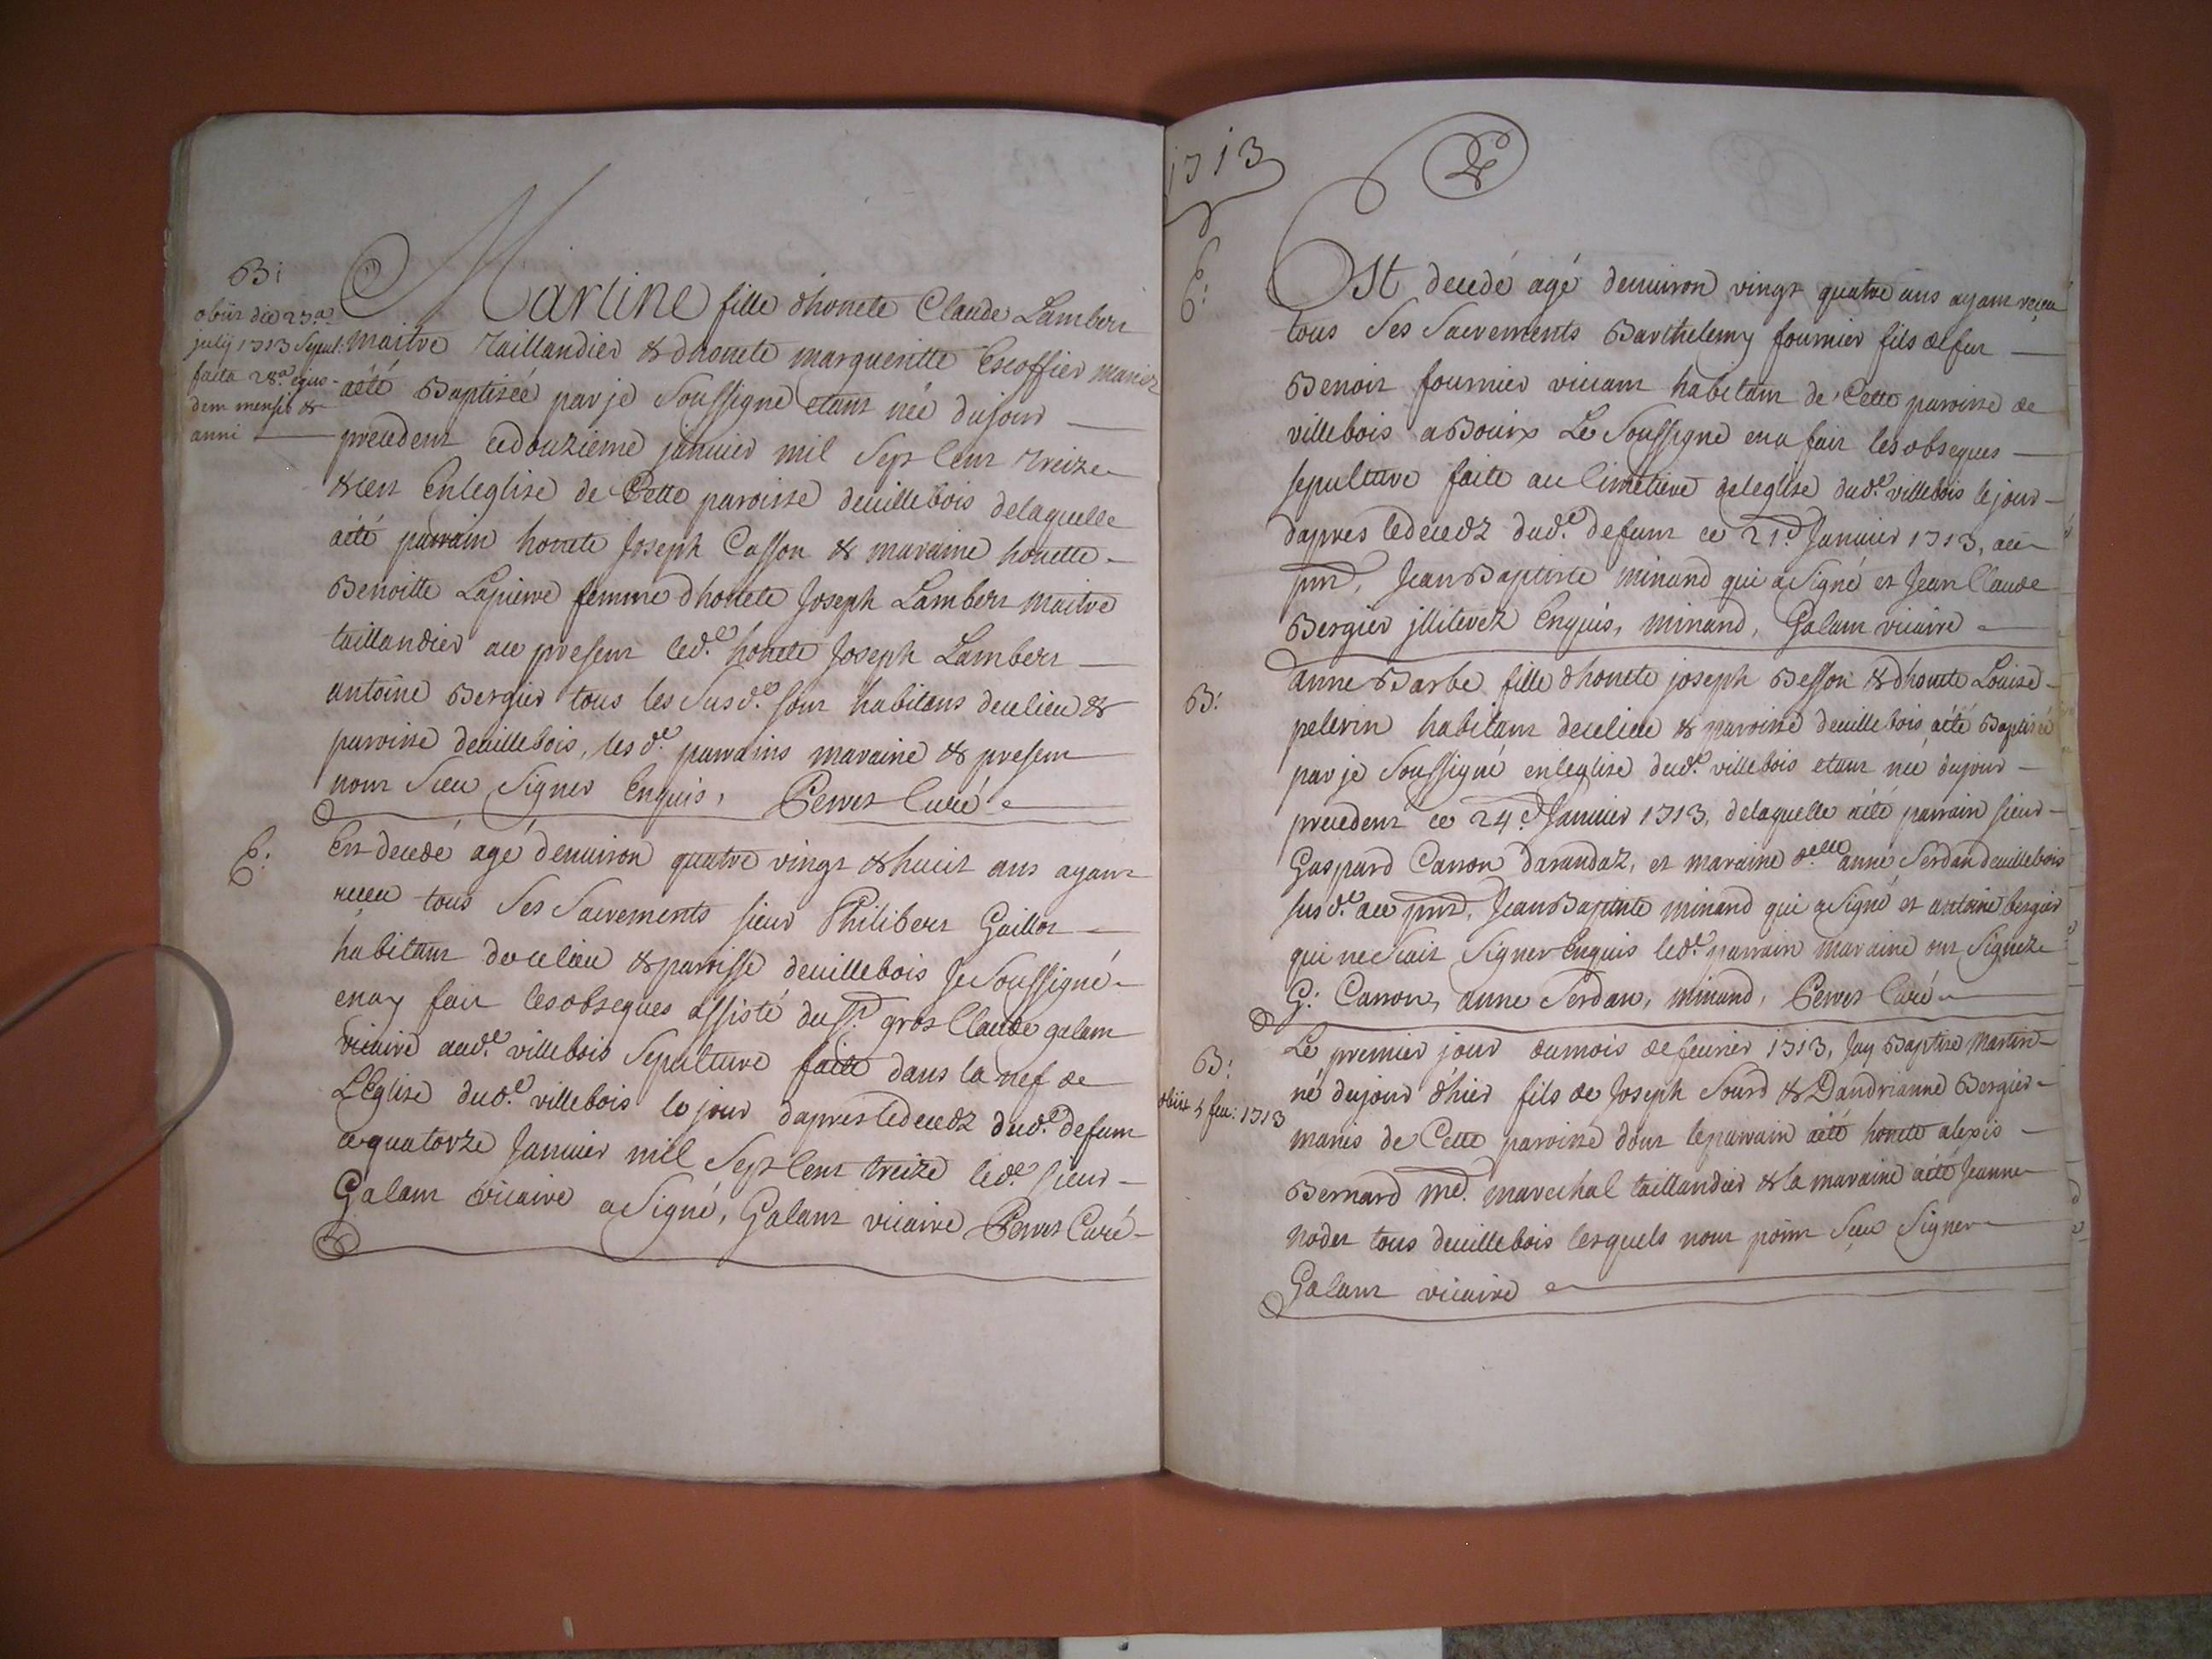 B:
obiit die 27.a
julij 1713 Sepul.
facta 28.a ejus-
dem mensis &
anni
Martine fille d'honete Claude Lambert
maitre Taillandier & dhonete margueritte Escoffier mariez
aété Baptisée par je Soussigné etant née du jour
precedent ce douzieme janvier mil Sept Cent treize
& cest en leglise de Cette paroisse de villebois de laquelle
aété parrain honete Joseph Casson & maraine honette
Benoitte Lapierre femme dhonete Joseph Lambert maitre
taillandier au present led.e honete Joseph Lambert
antoine Bergier tous les Susd.e Sont habitans de ce lieu &
paroisse de villebois, les d.e parrains maraine & present
nont Sceu Signer Enquis, Perret Curé
E:
Est decedé agé denviron quatre vingt & huit ans ayant
receu tous Ses Sacrements sieur Philibert Gaillot
habitant de ce lieu & paroisse de villebois Je Soussigné
en ay fait les obseques assisté du Sr. gros Claude galant
vicaire aud.e villebois Sepulture faite dans la nef de
LEglise dud.e villebois le jour dapres le decedz dud.e defunt
ce quatorze Janvier mil Sept Cent treize led.e sieur
Galant vicaire a Signé, Galant vicaire Perret Curé
1713
E:
Est decedé agé denviron vingt quatre ans ayant receu
tous Ses Sacrements Barthelemy fournier fils de feu
Benoit fournier vivant habitant de Cette paroisse de
villebois a Bouix Le Soussigné en a fait les obseques
sepulture faite au Cimetiere de leglise dud.e villebois le jour
dapres le decedz dud.e defunt ce 21.e Janvier 1713, au
pnt, Jean Baptiste minand qui a Signé et Jean Claude
Bergier jlliterez Enquis, minand, Galant vicaire
B:
anne Barbe fille dhonete joseph Besson & dhonete Louise
pelerin habitant de ce lieu & paroisse de villebois aété Baptisée
par je Soussigné en leglise dud.e villebois etant née du jour
precedent ce 24.e Janvier 1713, de laquelle aété parrain sieur
Gaspard Carron darandaz, et maraine d.elle anne Serdan de villebois
sus d.e au pnt, Jean Baptiste minand qui a Signé et antoine bergier
qui ne Scait Signer Enquis led.e parrain maraine ont Signez
G: Carron, anne Serdan, minand, Perret Curé
B:
obiit 4 feu: 1713
Le premier jour du mois de fevrier 1713, Jay Baptizé Martin
né du jour d'hier fils de Joseph Sourd & Dandrianne Bergier
mariés de Cette paroisse dont le parrain aété honette alexis
Bernard md. marechal taillandier & la maraine aété Jeanne
nodet tous de villebois lesquels nont point Sceu Signer
Galant vicaire